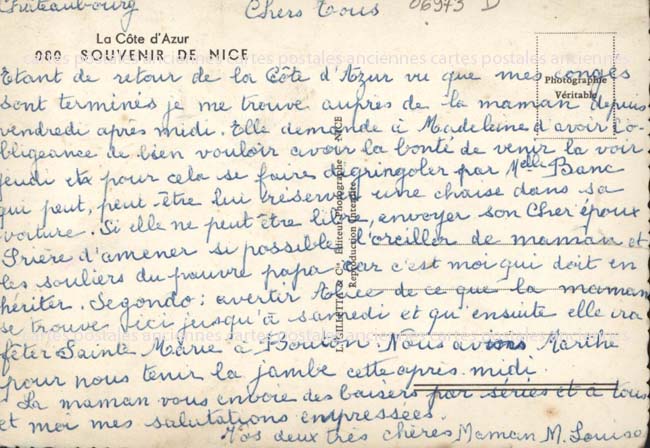 Châteaubourg Chers tous 06973 D
La Côte d'Azur
080 SOUVENIR DE NICE
cartes postales anciennes cartes postales anciennes cartes postales anciennes
Photographie
Véritable
Etant de retour de la Côte d'Azur vu que mes congés
sont terminés je me trouve auprès de la maman depuis
vendredi après midi. Elle demande à Madeleine d'avoir l'o-
bligeance de bien vouloir avoir la bonté de venir la voir
jeudi et pour cela se faire dégringoler par Melle Banc
qui peut, peut-être lui réserver une chaise dans sa
voiture. Si elle ne peut être libre, envoyer son Cher époux
Prière d'amener si possible l'oreiller de maman et
les souliers du pauvre papa car c'est moi qui doit en
hériter. Segondo: avertir Alice de ce que la maman
se trouve ici jusqu'à samedi et qu'ensuite elle ira
fêter Sainte Marie à Boulon. Nous avons Marthe
pour nous tenir la jambe cette après midi.
La maman vous envoie des baisers par séries et à tous
et moi mes salutations empressées.
Vos deux très chères Maman M. Louise
GILLETTA & Cie Editeur Photographe NICE
Reproduction Interdite